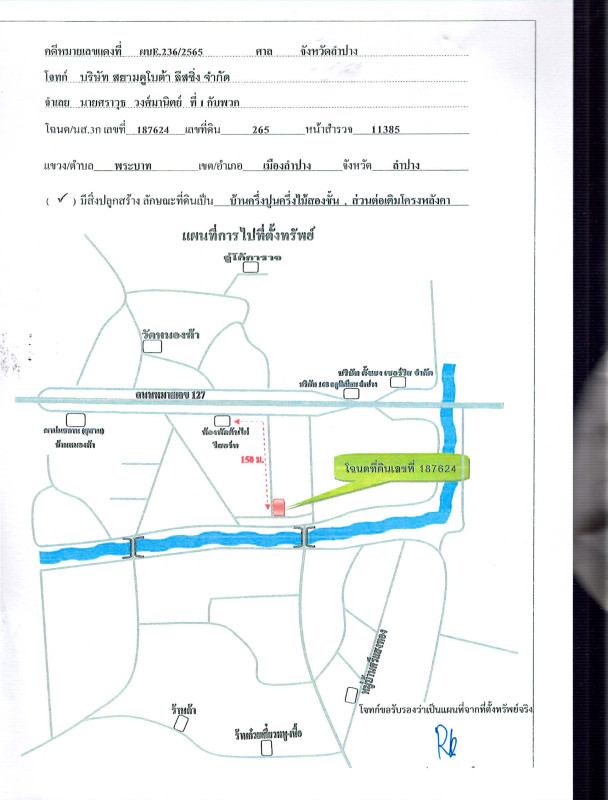 คดีหมายเลขแดงที่ ผบE.236/2565 ศาล จังหวัดลำปาง
โจทก์ บริษัท สยามคูโบต้า ลีสซิ่ง จำกัด
จำเลย นายศราวุธ วงศ์มานิตย์ ที่ 1 กับพวก
โฉนด/นส.3ก เลขที่ 187624 เลขที่ดิน 265 หน้าสำรวจ 11385
แขวง/ตำบล พระบาท เขต/อำเภอ เมืองลำปาง จังหวัด ลำปาง
( ✓ ) มีสิ่งปลูกสร้าง ลักษณะที่ดินเป็น บ้านครึ่งปูนครึ่งไม้สองชั้น , ส่วนต่อเติมโครงหลังคา
แผนที่การไปที่ตั้งทรัพย์
อู่โก้การาจ
วัดหนองห้า
จำกัด
ถนนหมายเลข 127
150 ม.
โฉนดที่ดินเลขที่ 187624
หมู่บ้านศรีแสงทอง
โจทก์ขอรับรองว่าเป็นแผนที่จากที่ตั้งทรัพย์จริง
ร้านก๋วยเตี๋ยวหมู-เนื้อ